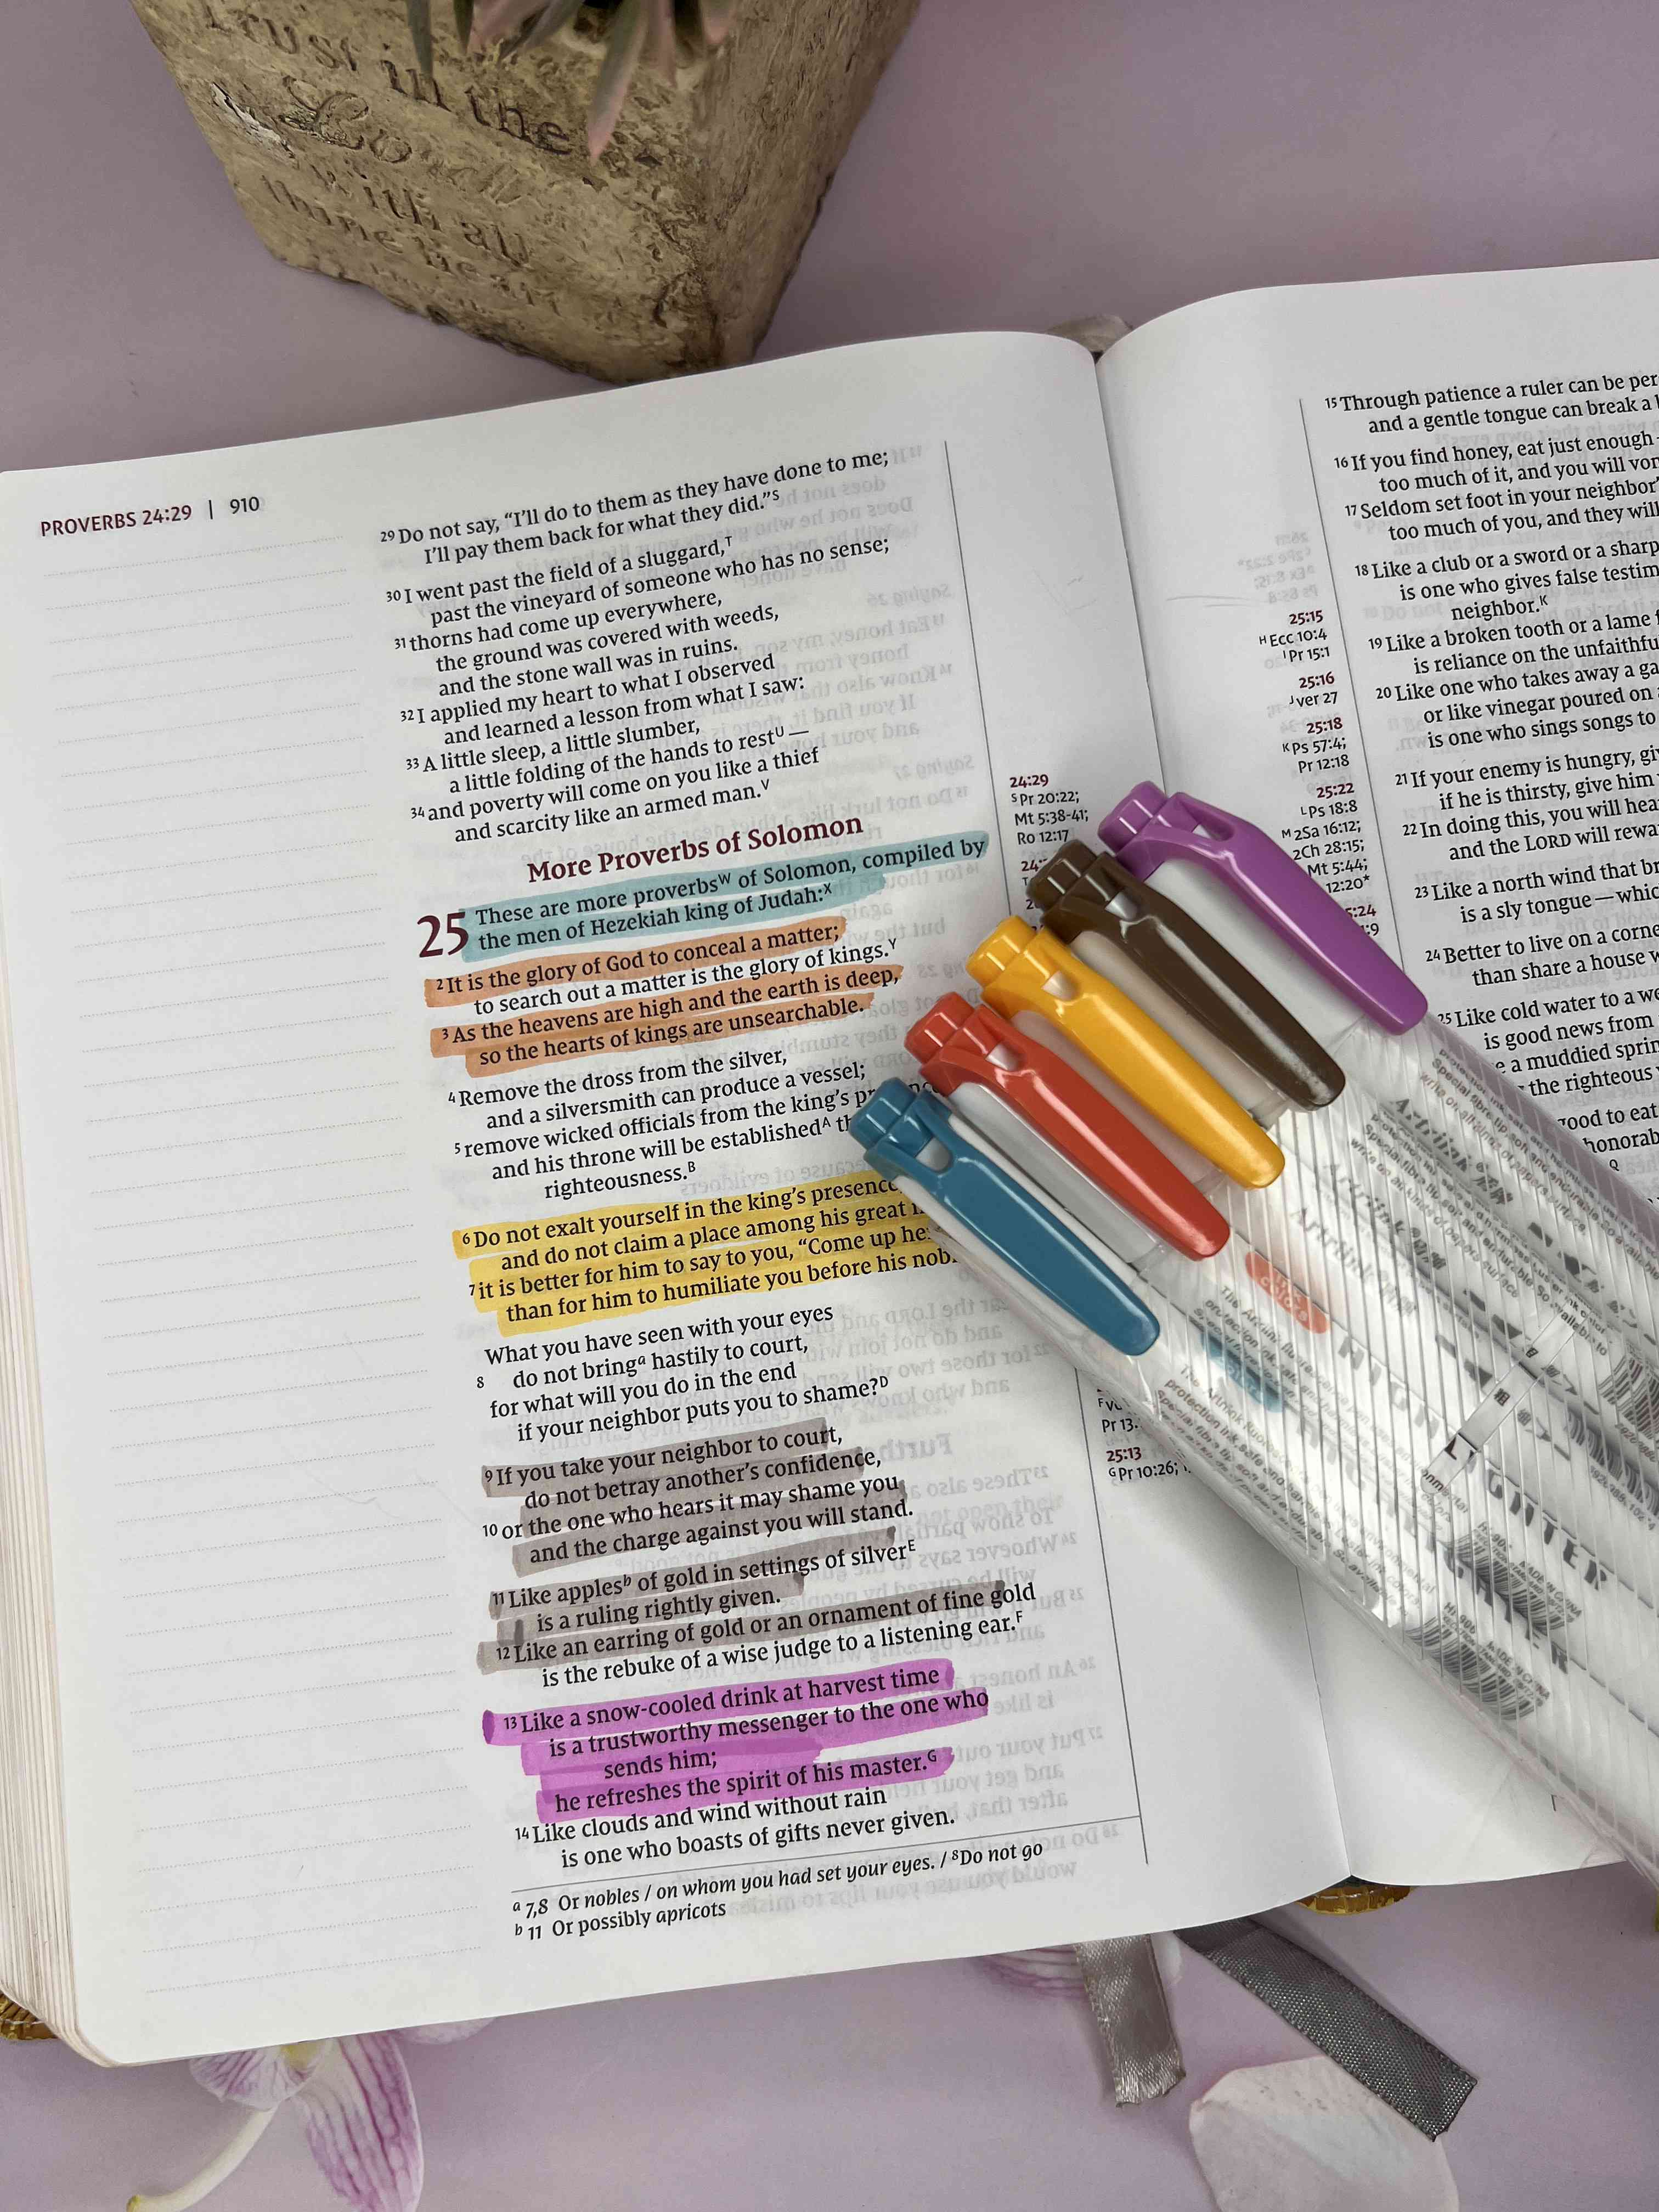 Trust in the
Lord
with all
thine heart
PROVERBS 24:29 | 910
29 Do not say, “I’ll do to them as they have done to me;
I’ll pay them back for what they did.”S
30 I went past the field of a sluggard,T
past the vineyard of someone who has no sense;
31 thorns had come up everywhere,
the ground was covered with weeds,
and the stone wall was in ruins.
32 I applied my heart to what I observed
and learned a lesson from what I saw:
33 A little sleep, a little slumber,
a little folding of the hands to restU —
34 and poverty will come on you like a thief
and scarcity like an armed man.V
More Proverbs of Solomon
25 These are more proverbsW of Solomon, compiled by
the men of Hezekiah king of Judah:X
2 It is the glory of God to conceal a matter;
to search out a matter is the glory of kings.Y
3 As the heavens are high and the earth is deep,
so the hearts of kings are unsearchable.
4 Remove the dross from the silver,
and a silversmith can produce a vessel;
5 remove wicked officials from the king’s
and his throne will be establishedA
righteousness.B
6 Do not exalt yourself in the king’s presence
and do not claim a place among his great
7 it is better for him to say to you, “Come up
than for him to humiliate you before his
What you have seen with your eyes
8 do not bringa hastily to court,
for what will you do in the end
if your neighbor puts you to shame?D
9 If you take your neighbor to court,
do not betray another’s confidence,
10 or the one who hears it may shame you
and the charge against you will stand.
11 Like applesb of gold in settings of silverE
is a ruling rightly given.
12 Like an earring of gold or an ornament of fine gold
is the rebuke of a wise judge to a listening ear.F
13 Like a snow-cooled drink at harvest time
is a trustworthy messenger to the one who
sends him;
he refreshes the spirit of his master.G
14 Like clouds and wind without rain
is one who boasts of gifts never given.
a 7,8 Or nobles / on whom you had set your eyes. / 8 Do not go
b 11 Or possibly apricots
24:29
S Pr 20:22;
Mt 5:38-41;
Ro 12:17
Pr 13:
25:13
G Pr 10:26;
25:15
H Ecc 10:4
I Pr 15:1
25:16
J ver 27
25:18
K Ps 57:4;
Pr 12:18
25:22
L Ps 18:8
M 2Sa 16:12;
2Ch 28:15;
Mt 5:44;
12:20*
15 Through patience a ruler can be
and a gentle tongue can break a
16 If you find honey, eat just enough
too much of it, and you will
17 Seldom set foot in your neighbor’
too much of you, and they will
18 Like a club or a sword or a sharp
is one who gives false
neighbor.K
19 Like a broken tooth or a lame
is reliance on the
20 Like one who takes away a
or like vinegar poured on
is one who sings songs to
21 If your enemy is hungry,
if he is thirsty, give him
22 In doing this, you will
and the LORD will
23 Like a north wind that
is a sly tongue—
24 Better to live on a
than share a house
25 Like cold water to a
is good news from
a muddied
the righteous
good to eat
Q
Artrink